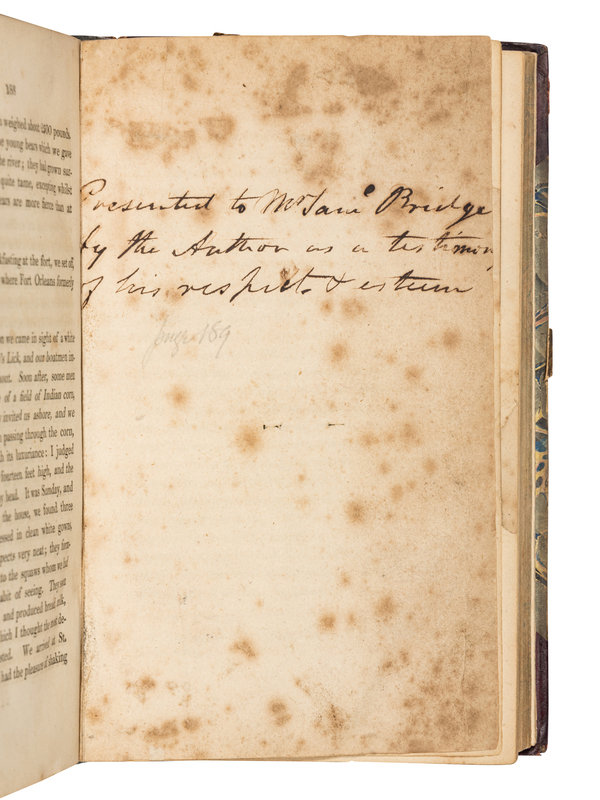 188
weighed about 200 pounds.
young bears which we gave
river; they had grown sur-
quite tame, excepting whilst
ears are more fierce than at
kfasting at the fort, we set off,
where Fort Orleans formerly
on we came in sight of a white
's Lick, and our boatmen in-
hoot. Soon after, some men
of a field of Indian corn,
invited us ashore, and we
passing through the corn,
its luxuriance: I judged
fourteen feet high, and the
y head. It was Sunday, and
the house, we found three
essed in clean white gowns,
pects very neat; they form-
to the squaws whom we had
abit of seeing. They soon
and produced bread, milk,
hich I thought the most de-
sted. We arrived at St.
had the pleasure of shaking
Presented to Mr Saml Bridge
by the Author as a testimony
of his respect & esteem
page 189